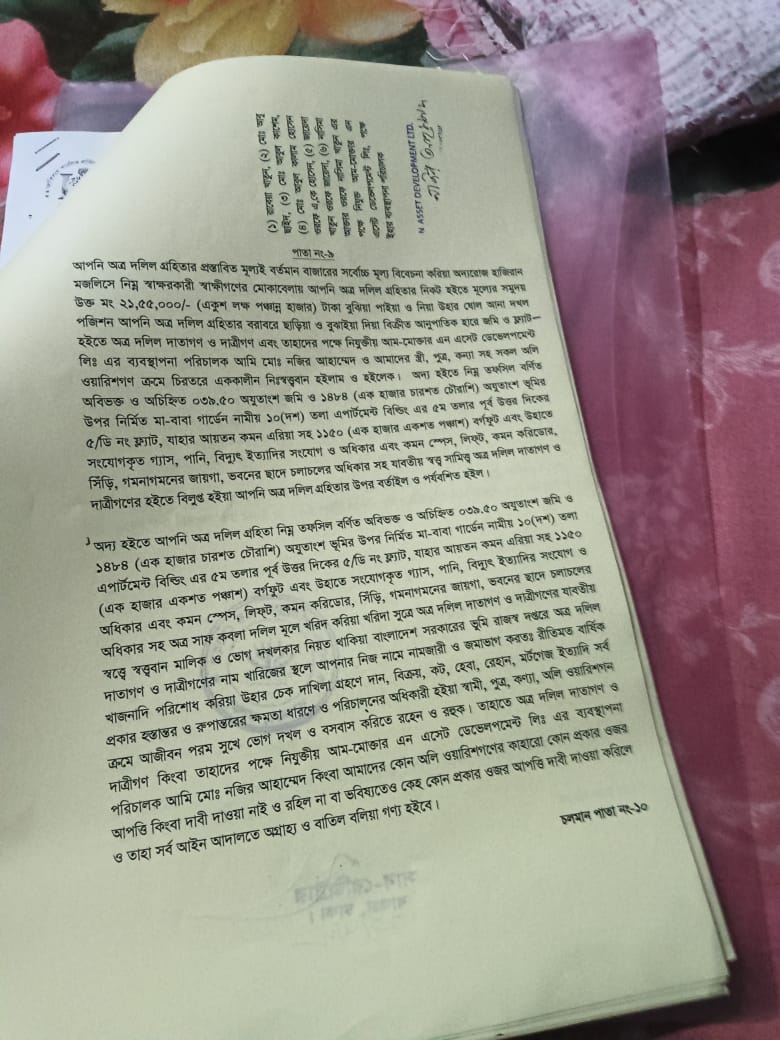 (১) রাবেয়া খাতুন, (২) মোঃ আবু
ছাইদ, (৩) মোঃ আবুল কাশেম,
(৪) মোঃ আবুল কালাম হোসেন
ওরফে এ,কে হোসেন, (৫) জায়েদা
খাতুন ওরফে জায়েদা, (৬) নাসিমা
আক্তার ওরফে নাসিমা খাতুন এর
পক্ষে নিযুক্ত আম-মোক্তার এন
এসেট ডেভেলপমেন্ট লিঃ, পক্ষে
ইহার ব্যবস্থাপনা পরিচালক
N ASSET DEVELOPMENT LTD.
পাতা নং-৯
আপনি অত্র দলিল গ্রহিতার প্রস্তাবিত মূল্যই বর্তমান বাজারের সর্বোচ্চ মূল্য বিবেচনা করিয়া অদ্যরোজ হাজিরান
মজলিসে নিম্ন স্বাক্ষরকারী স্বাক্ষীগণের মোকাবেলায় আপনি অত্র দলিল গ্রহিতার নিকট হইতে মূল্যের সমুদয়
উক্ত মং ২১,৫৫,০০০/- (একুশ লক্ষ পঞ্চান্ন হাজার) টাকা বুঝিয়া পাইয়া ও নিয়া উহার ষোল আনা দখল
পজিশন আপনি অত্র দলিল গ্রহিতার বরাবরে ছাড়িয়া ও বুঝাইয়া দিয়া বিক্রীত আনুপাতিক হারে জমি ও ফ্ল্যাট–
হইতে অত্র দলিল দাতাগণ ও দাত্রীগণ এবং তাহাদের পক্ষে নিযুক্তীয় আম-মোক্তার এন এসেট ডেভেলপমেন্ট
লিঃ এর ব্যবস্থাপনা পরিচালক আমি মোঃ নজির আহাম্মেদ ও আমাদের স্ত্রী, পুত্র, কন্যা সহ সকল অলি
ওয়ারিশগণ ক্রমে চিরতরে এককালীন নিঃস্বত্ত্ববান হইলাম ও হইলেক। অদ্য হইতে নিম্ন তফসিল বর্ণিত
অবিভক্ত ও অচিহ্নিত ০৩৯.৫০ অযুতাংশ জমি ও ১৪৮৪ (এক হাজার চারশত চৌরাশি) অযুতাংশ ভূমির
উপর নির্মিত মা-বাবা গার্ডেন নামীয় ১০(দশ) তলা এপার্টমেন্ট বিল্ডিং এর ৫ম তলার পূর্ব উত্তর দিকের
৫/ডি নং ফ্ল্যাট, যাহার আয়তন কমন এরিয়া সহ ১১৫০ (এক হাজার একশত পঞ্চাশ) বর্গফুট এবং উহাতে
সংযোগকৃত গ্যাস, পানি, বিদ্যুৎ ইত্যাদির সংযোগ ও অধিকার এবং কমন স্পেস, লিফ্ট, কমন করিডোর,
সিঁড়ি, গমনাগমনের জায়গা, ভবনের ছাদে চলাচলের অধিকার সহ যাবতীয় স্বত্ত্ব সামিত্ব অত্র দলিল দাতাগণ ও
দাত্রীগণের হইতে বিলুপ্ত হইয়া আপনি অত্র দলিল গ্রহিতার উপর বর্তাইল ও পর্যবশিত হইল।
অদ্য হইতে আপনি অত্র দলিল গ্রহিতা নিম্ন তফসিল বর্ণিত অবিভক্ত ও অচিহ্নিত ০৩৯.৫০ অযুতাংশ জমি ও
১৪৮৪ (এক হাজার চারশত চৌরাশি) অযুতাংশ ভূমির উপর নির্মিত মা-বাবা গার্ডেন নামীয় ১০(দশ) তলা
এপার্টমেন্ট বিল্ডিং এর ৫ম তলার পূর্ব উত্তর দিকের ৫/ডি নং ফ্ল্যাট, যাহার আয়তন কমন এরিয়া সহ ১১৫০
(এক হাজার একশত পঞ্চাশ) বর্গফুট এবং উহাতে সংযোগকৃত গ্যাস, পানি, বিদ্যুৎ ইত্যাদির সংযোগ ও
অধিকার এবং কমন স্পেস, লিফ্ট, কমন করিডোর, সিঁড়ি, গমনাগমনের জায়গা, ভবনের ছাদে চলাচলের
অধিকার সহ অত্র সাফ কবলা দলিল মূলে খরিদ করিয়া খরিদা সূত্রে অত্র দলিল দাতাগণ ও দাত্রীগণের যাবতীয়
স্বত্ত্বে স্বত্ত্ববান মালিক ও ভোগ দখলকার নিয়ত থাকিয়া বাংলাদেশ সরকারের ভূমি রাজস্ব দপ্তরে অত্র দলিল
দাতাগণ ও দাত্রীগণের নাম খারিজের স্থলে আপনার নিজ নামে নামজারী ও জমাভাগ করতঃ রীতিমত বার্ষিক
খাজনাদি পরিশোধ করিয়া উহার চেক দাখিলা গ্রহণে দান, বিক্রয়, কট, হেবা, রেহান, মর্টগেজ ইত্যাদি সর্ব
প্রকার হস্তান্তর ও রুপান্তরের ক্ষমতা ধারণে ও পরিচালনের অধিকারী হইয়া স্বামী, পুত্র, কণ্যা, অলি ওয়ারিশগন
ক্রমে আজীবন পরম সুখে ভোগ দখল ও বসবাস করিতে রহেন ও রহুক। তাহাতে অত্র দলিল দাতাগণ ও
দাত্রীগণ কিংবা তাহাদের পক্ষে নিযুক্তীয় আম-মোক্তার এন এসেট ডেভেলপমেন্ট লিঃ এর ব্যবস্থাপনা
পরিচালক আমি মোঃ নজির আহাম্মেদ কিংবা আমাদের কোন অলি ওয়ারিশগণের কাহারো কোন প্রকার ওজর
আপত্তি কিংবা দাবী দাওয়া নাই ও রহিল না বা ভবিষ্যতেও কেহ কোন প্রকার ওজর আপত্তি দাবী দাওয়া করিলে
ও তাহা সর্ব আইন আদালতে অগ্রাহ্য ও বাতিল বলিয়া গণ্য হইবে।
চলমান পাতা নং-১০